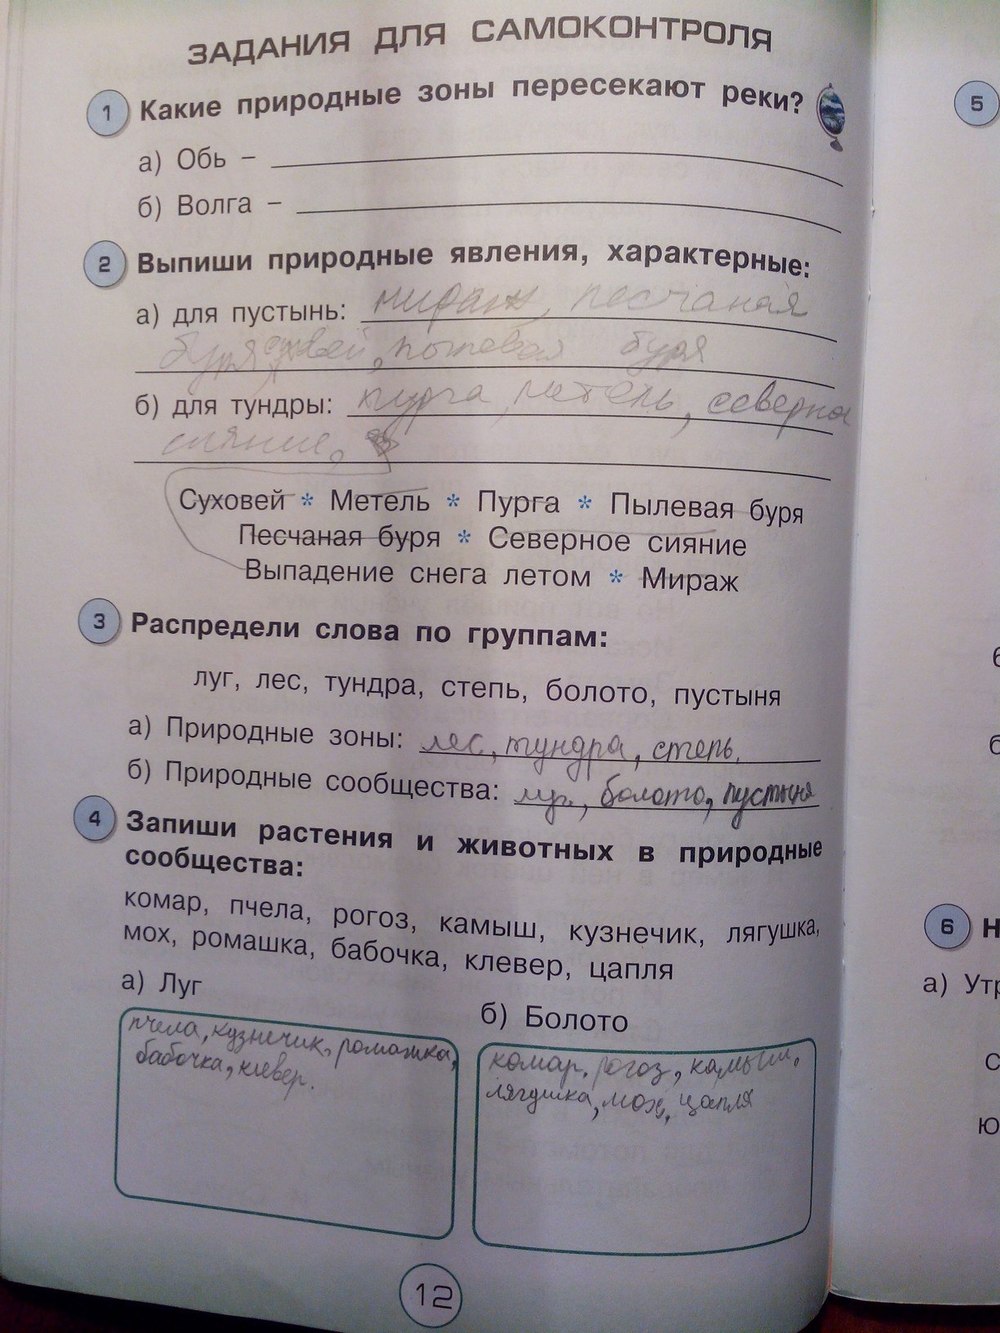 ЗАДАНИЯ ДЛЯ САМОКОНТРОЛЯ
1 Какие природные зоны пересекают реки?
а) Обь –
б) Волга –
2 Выпиши природные явления, характерные:
а) для пустынь: мираж, песчаная
буря, суховей, пылевая буря
б) для тундры: пурга, метель, северное
сияние,
Суховей * Метель * Пурга * Пылевая буря
Песчаная буря * Северное сияние
Выпадение снега летом * Мираж
3 Распредели слова по группам:
луг, лес, тундра, степь, болото, пустыня
а) Природные зоны: лес, тундра, степь.
б) Природные сообщества: луг, болото, пустыня
4 Запиши растения и животных в природные
сообщества:
комар, пчела, рогоз, камыш, кузнечик, лягушка,
мох, ромашка, бабочка, клевер, цапля
а) Луг
пчела, кузнечик, ромашка,
бабочка, клевер.
б) Болото
комар, рогоз, камыш,
лягушка, мох, цапля
12
5
6 Н
а) Утр
С
Ю